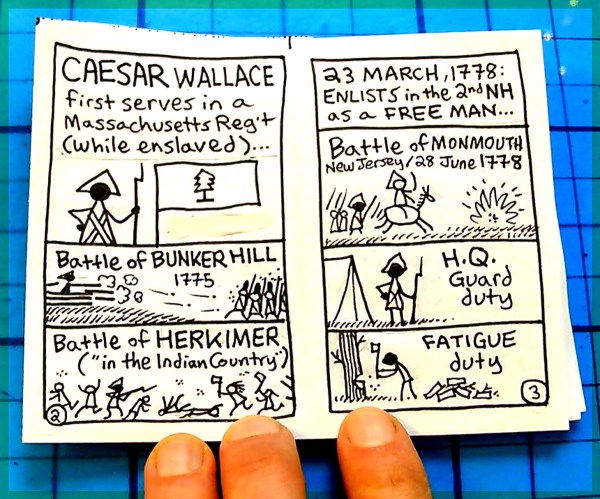 CAESAR WALLACE
first serves in a
Massachusetts Reg't
(while enslaved)...
Battle of BUNKER HILL
1775
Battle of HERKIMER
("in the Indian Country")
2
23 MARCH, 1778:
ENLISTS in the 2nd NH
as a FREE MAN...
Battle of MONMOUTH
New Jersey/28 June 1778
H.Q.
Guard
duty
FATIGUE
duty
3